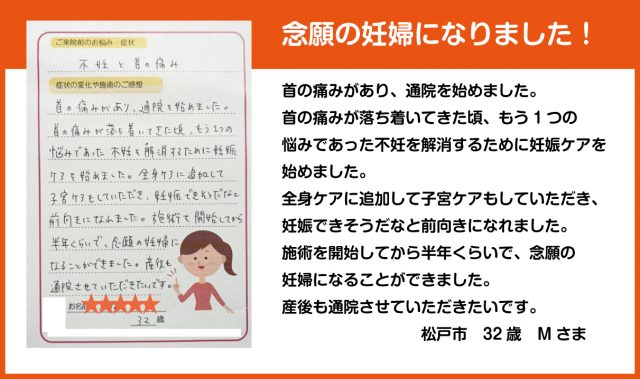 念願の妊婦になりました！
ご来院前のお悩み・症状
不妊と首の痛み
症状の変化や施術のご感想
首の痛みがあり、通院を始めました。
首の痛みが落ち着いてきた頃、もう1つの
悩みであった不妊を解消するために妊娠
ケアを始めました。全身ケアに追加して
子宮ケアもしていただき、妊娠できそうだなと
前向きになれました。施術を開始してから
半年くらいで、念願の妊婦に
なることができました。産後も
通院させていただきたいです。
お名前
32 歳
首の痛みがあり、通院を始めました。
首の痛みが落ち着いてきた頃、もう1つの
悩みであった不妊を解消するために妊娠ケアを
始めました。
全身ケアに追加して子宮ケアもしていただき、
妊娠できそうだなと前向きになれました。
施術を開始してから半年くらいで、念願の
妊婦になることができました。
産後も通院させていただきたいです。
松戸市　32歳　Mさま